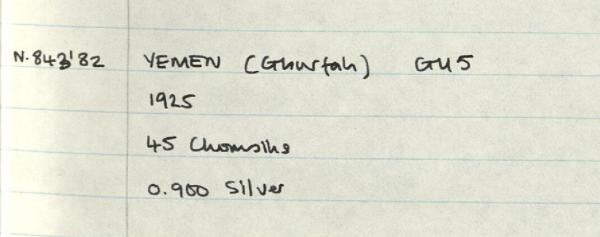 N.843'82 YEMEN (Ghurfah) GU5
1925
45 Chomsihs
0.900 Silver